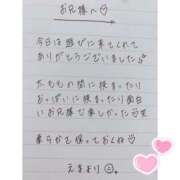 お兄様へ♡
今日は遊びに来てくれて
ありがとうございました♪
太ももの間に挟まったり
おっぱいに挟まったり面白
い お兄様で楽しかった😊笑
柔らかさ保っておくね♡
えまより☺